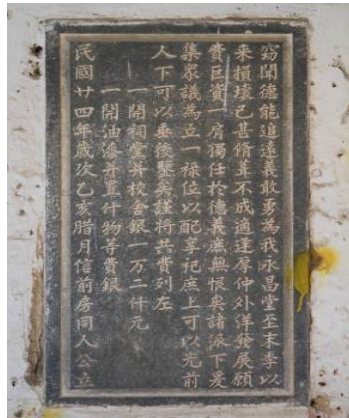 窃聞德能追遠義敢勇為我永昌堂至末季以
来損壞已甚脩葺不成適逢厚仲外洋發展願
費巨資一肩獨任於德義庶無恨矣諸派下爰
集眾議為立一祿位以配享祀庶上可以光前
人下可以垂後鑒矣謹將共費列左
一開祠堂并校舍銀一万二仟元
一開油漆并置什物等費銀
民國廿四年歲次乙亥腊月信前房同人公立